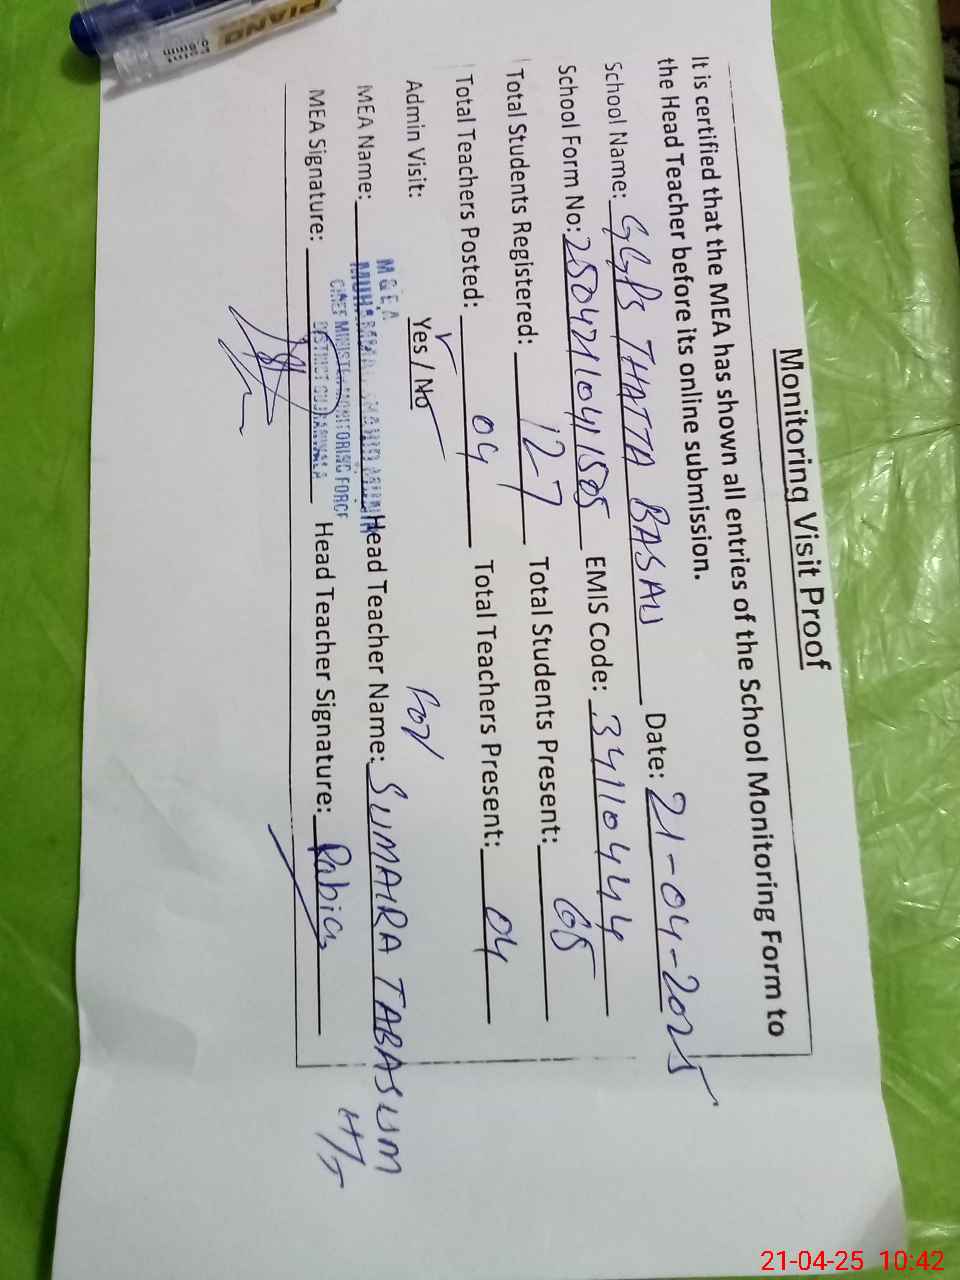 Monitoring Visit Proof
It is certified that the MEA has shown all entries of the School Monitoring Form to
the Head Teacher before its online submission.
School Name: GGPS THATTA BASAU Date: 21-04-2025
School Form No: 2504211041505 EMIS Code: 34110444
Total Students Registered: 127 Total Students Present: 65
Total Teachers Posted: 04 Total Teachers Present: 04
Admin Visit: Yes / No
For
MEA Name: Head Teacher Name: SUMAIRA TABASUM
M & E A
CHIEF MINISTER MONITORING FORCE
DISTRICT GUJRANWALA
MEA Signature: Head Teacher Signature: Rabia
H/T
PIANO
21-04-25 10:42